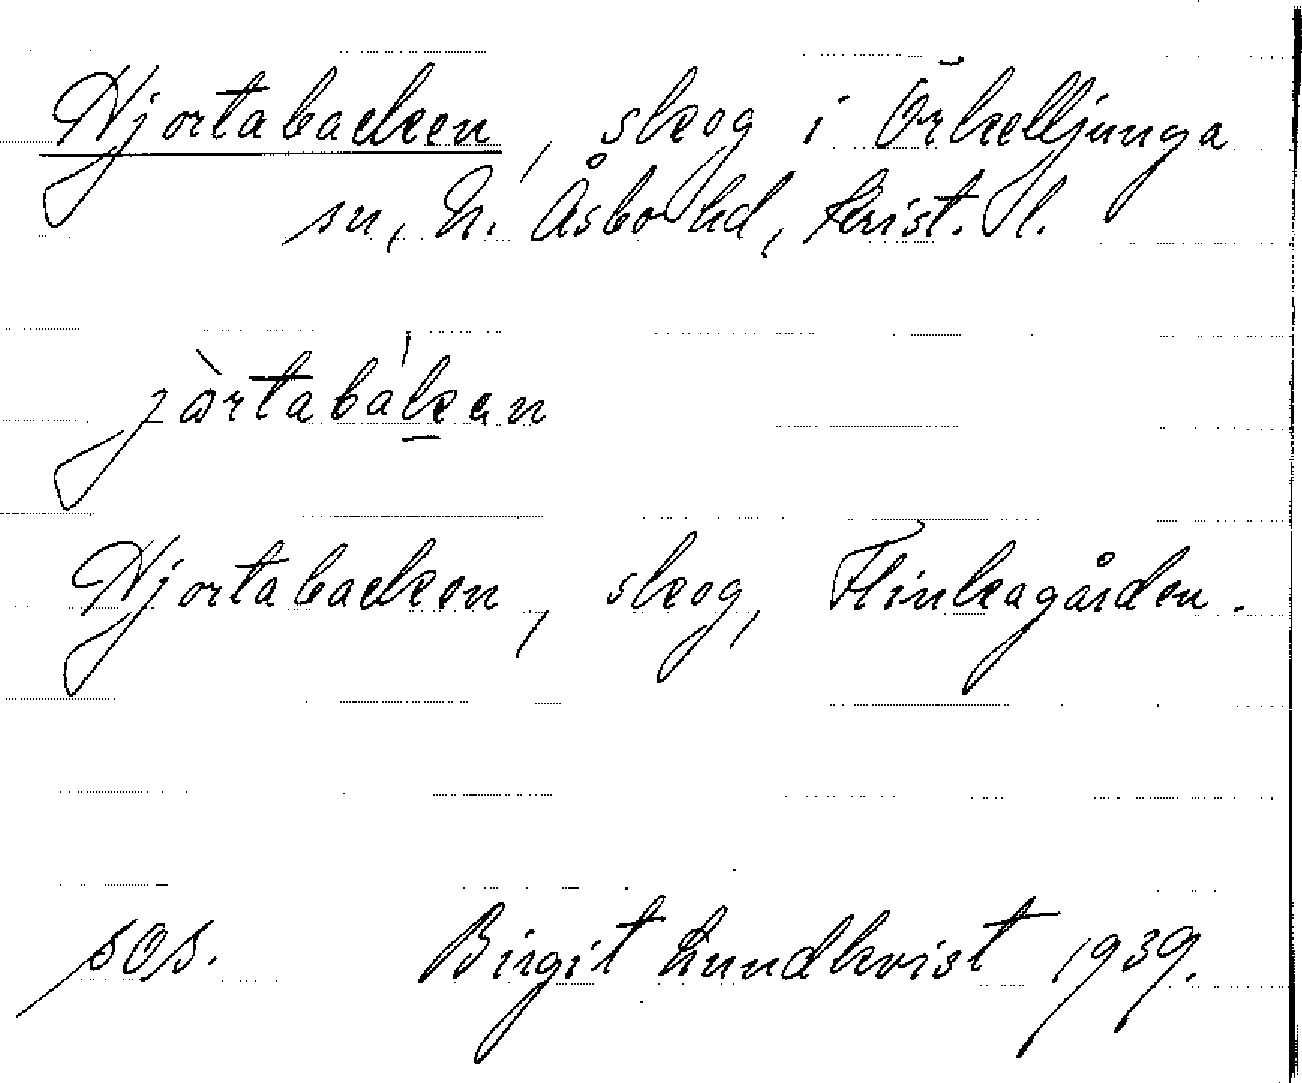 Hjortabacken, skog i Örkelljunga
sn, N. Åsbo hd, Krist. l.
jàrtabák̲an
Hjortabacken, skog, Flinkagården.
sos. Birgit Lundkvist 1939.